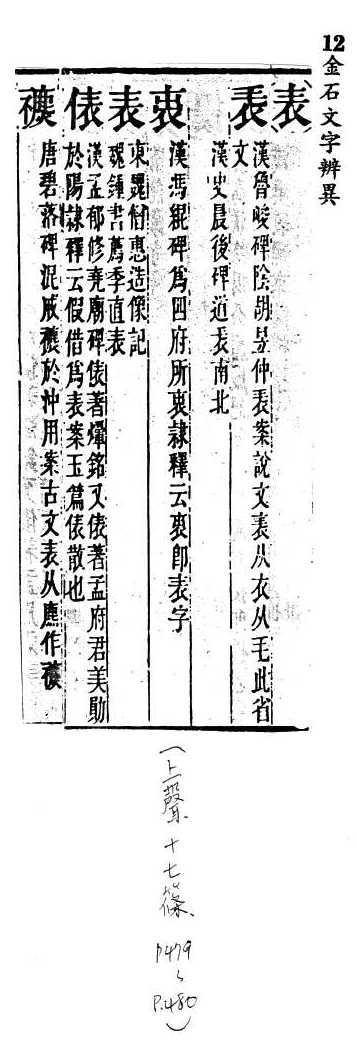 12 金石文字辨異
表
𧘝 漢魯峻碑陰胡昱仲𧘝案說文表从衣从毛此省
文
漢史晨後碑道𧘝南北
𧘲 漢馮緄碑爲四府所𧘲隸釋云𧘲卽表字
表 東魏僧惠造像記
魏鍾書薦季直表
俵 漢孟郁修堯廟碑俵著爥銘又俵著孟府君美勛
於陽隸釋云假借爲表案玉篇俵散也
唐碧落碑混成於沖用案古文表从麃作
(上聲十七篠、
P479
~
P.480)